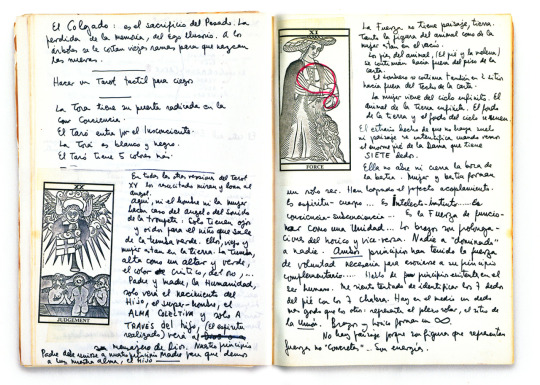 El Colgado: es el sacrificio del Pasado. La
perdida de la memoria, del ego ilusorio. A los
árboles se le cortan viejas ramas para que nazcan
las nuevas.
Hacer un Tarot tactil para ciegos
La Tora tiene su puerta radicada en la
Conciencia.
El Tarot entra por el Inconsciente.
La Tora es blanco y negro.
El Tarot tiene 5 colores más.
En todas las otras versiones del Tarot
XX los resucitados miran y oran al
angel.
aquí, ni el hombre ni la mujer
hacen caso del angel o del sonido
de la trompeta. Solo tienen ojos
y oidos para el niño que sale
de la tumba verde. Ellos, viejo y
mujer estan en la tierra. La tumba,
alta como un altar y verde,
el color de
Padre y madre, la Humanidad,
solo verá el nacimiento del
Hijo, el super-hombre, el
ALMA COLECTIVA y solo A
TRAVES del hijo, (El espiritu
realizado) verá al
mensajero de Dios. Nuestro principio
Padre debe unirse a nuestro principio Madre para que demos
a luz nuestra alma, el Hijo
XX
JUDGEMENT
XI
FORCE
La Fuerza no tiene paisaje, tierra.
Tanto la figura del animal como de la
mujer estan en el vacío.
Los pies del animal, (El pié y la melena)
se continuan hacia fuera del piso de la
carta.
El sombrero se continua tambien en
hacia fuera del Techo de la carta.
La mujer viene del cielo infinito. El
animal de la tierra infinita. El fondo
de la tierra y el fondo del cielo se unen.
El extraño hecho de que no haya suelo
ni paisaje se intensifica cuando vemos
el enorme pié de la Dama que tiene
SIETE dedos.
Ella no abre ni cierra la boca de
la bestia. Mujer y bestia forman
un solo ser. Han logrado el perfecto acoplamiento.
Es espiritu-cuerpo... Es Intelecto-instinto... Es
conciencia-subconciencia... Es la Fuerza de funcio-
nar como una Unidad... Los brazos son prolonga-
ciones del hocico y vice-versa. Nadie "domina"
a nadie. Ambos principios han tenido la fuerza
de voluntad necesaria para unirse a su principio
complementario... Hablo de principios existentes en el
ser humano. Me siento tentado de identificar los 7 dedos
del pié con los 7 chakras. Hay en el medio un dedo
más gordo que los otros: representa el plexo solar, el sitio de
la unión. Brazos y hocico forman un ∞
No hay paisaje porque las figuras que representan
fuerza no "concreta"... Son energía.